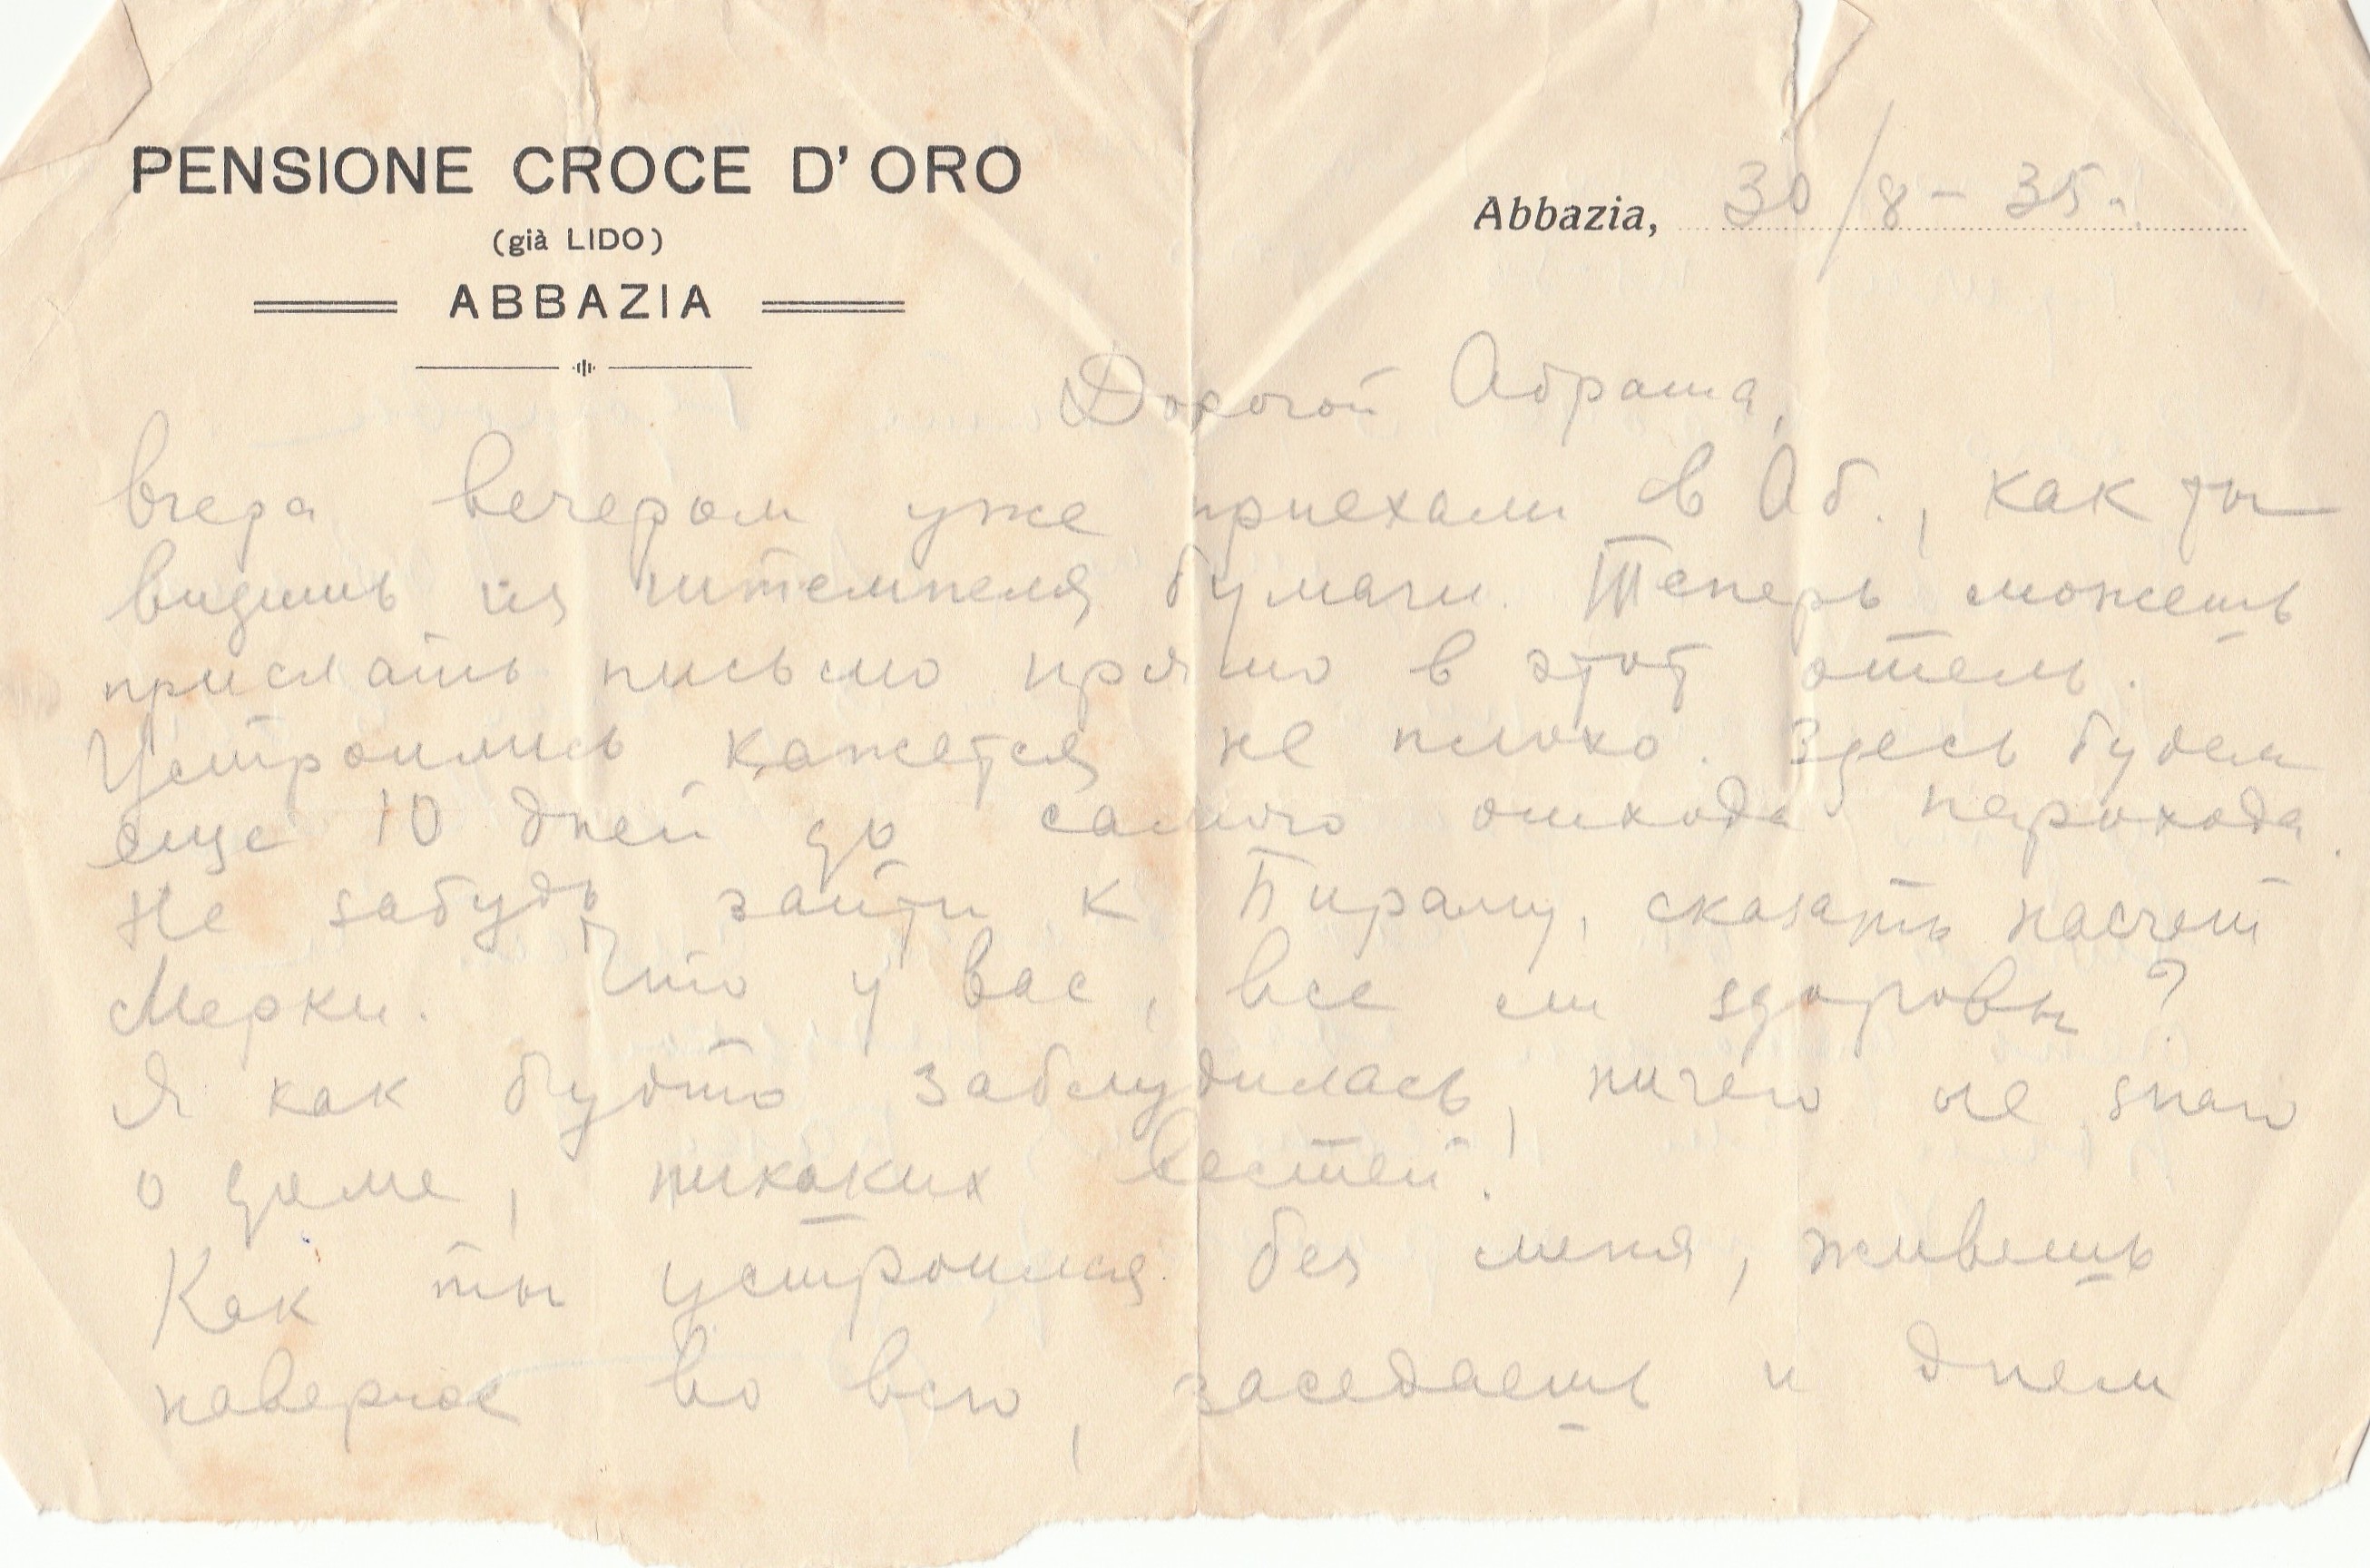 PENSIONE CROCE D'ORO
(già LIDO)
ABBAZIA
Abbazia, 30/8 - 35 г.
Дорогой Абраша,
вчера вечером уже приехали в Аб., как ты
видишь из штемпеля бумаги. Теперь можешь
прислать письмо прямо в этот отель.
Устроились кажется не плохо. Здесь будем
еще 10 дней до самого отхода парохода.
Не забудь зайти к Пираму, сказать насчет
Мерки. Что у вас, все ли здоровы?
Я как будто заблудилась, ничего не знаю
о доме, никаких вестей.
Как ты устроился без меня, живешь
наверное во всю, заседаешь и днем